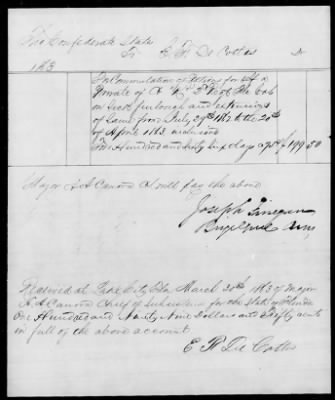 The Confederate States
To E. R. De Cottes Dr
1863
For Commutation of Rations for self a
Private of Co 3d Regt Fla Vols
on sick furlough and extensions
of same from July 29th 1862 to the 20th
of April 1863 inclusive
Two Hundred and sixty six days @ 75¢ $199 50
Major A. A. Canova C.S. will pay the above
Joseph Finegan
Brig Genl
Received at Lake City Fla March 30th 1863 of Major
A A Canova Chief of Subsistence for the State of Florida
One Hundred and Ninety Nine Dollars and Fifty cents
in full of the above account
E R De Cottes